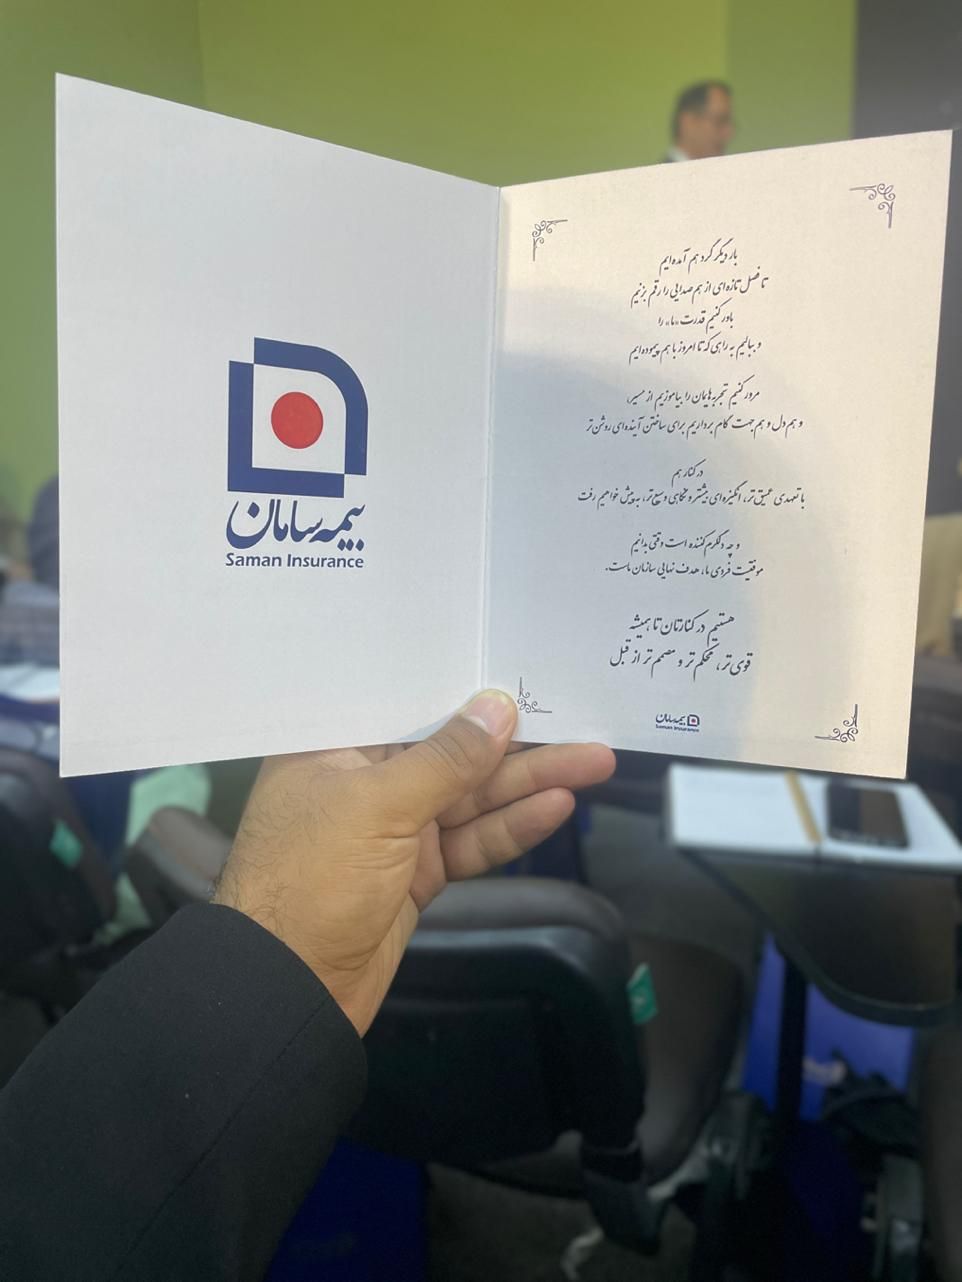 بیمه سامان
Saman Insurance
بار دیگر گرد هم آمده‌ایم
تا فصل تازه‌ای از هم‌صدایی را رقم بزنیم
باور کنیم قدرت «ما» را
و ببالیم به راهی که تا امروز با هم پیموده‌ایم
مرور کنیم تجربه‌هایمان را بیاموزیم از مسیر،
و هم دل و هم جهت گام برداریم برای ساختن آینده‌ای روشن‌تر
در کنار هم
با تعهدی عمیق‌تر، انگیزه‌ای بیشتر و نگاهی وسیع‌تر، به پیش خواهیم رفت
و چه دلگرم‌کننده است وقتی بدانیم
موفقیت فردی ما، هدف نهایی سازمان ماست.
هستیم در کنارتان تا همیشه
قوی‌تر، محکم‌تر و مصمم‌تر از قبل
بیمه سامان
Saman Insurance